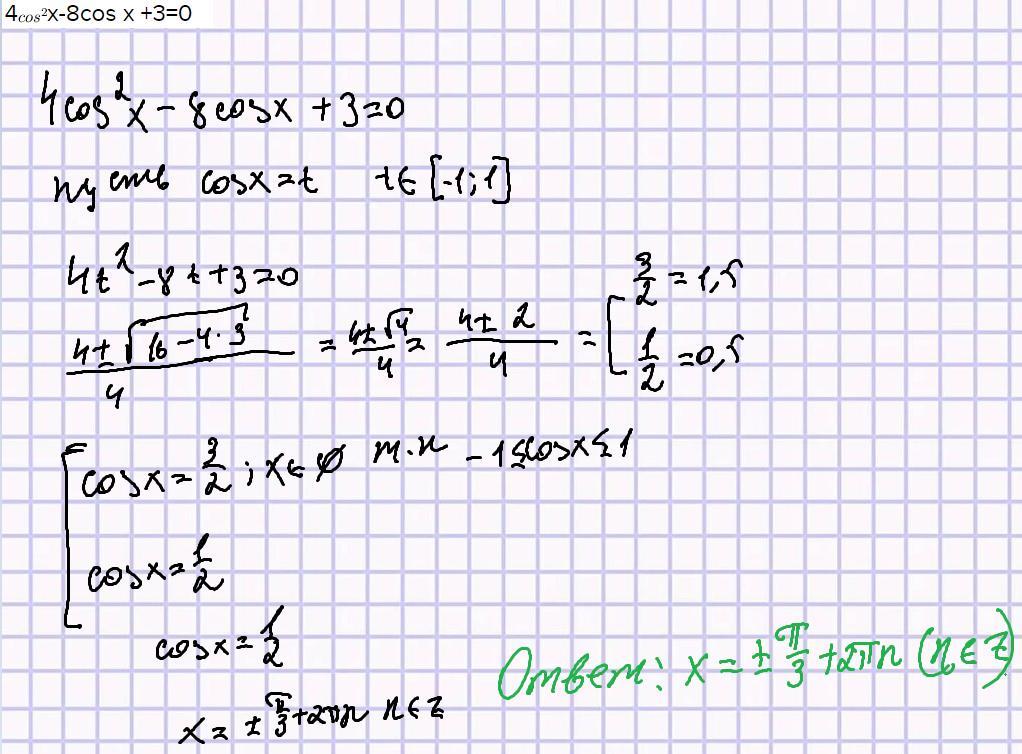 4cos²x-8cos x +3=0
4cos²x - 8cosx + 3=0
пусть cosx=t t∈[-1;1]
4t²-8t+3=0
(4±√(16-4·3))/4 = (4±√4)/4 = (4±2)/4 = [ 3/2 = 1,5
1/2 = 0,5
[ cosx = 3/2 ; x∈∅ т.к -1≤cosx≤1
cosx = 1/2
cosx = 1/2
x = ±π/3+2πn n∈Z
Ответ: x = ±π/3 +2πn (n∈Z)